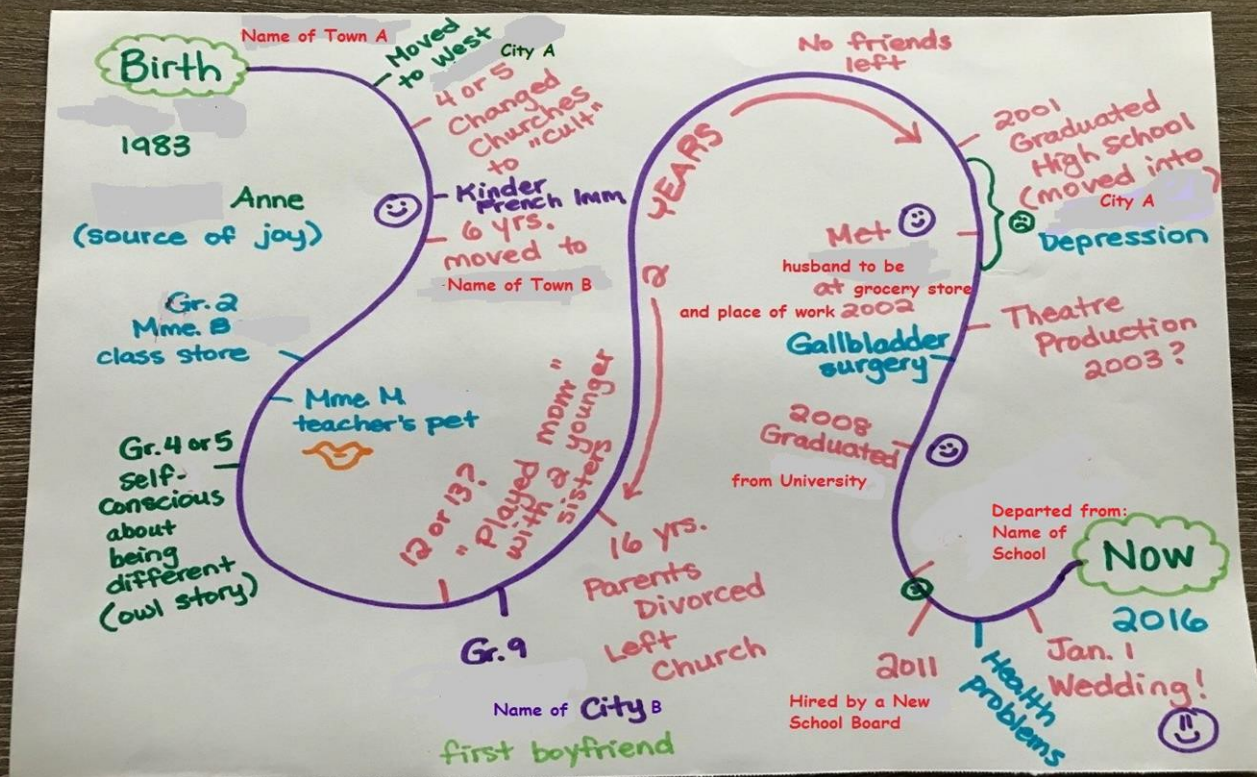 Birth
Name of Town A
1983
Moved
to West
City A
4 or 5
Changed
Churches
to "Cult"
Anne
(source of joy)
Kinder
French Imm
6 yrs.
moved to
Name of Town B
Gr. 2
Mme. B
class store
Mme. M
teacher's pet
Gr. 4 or 5
self-
conscious
about
being
different
(owl story)
12 or 13?
"Played mom"
with 2 younger
sisters
Gr. 9
Name of City B
first boyfriend
16 yrs.
Parents
Divorced
Left
Church
2 YEARS
No friends
left
2001
Graduated
High school
(moved into)
City A
Depression
Met
husband to be
at grocery store
and place of work 2002
Theatre
Production
2003?
Gallbladder
surgery
2008
Graduated
from University
2011
Hired by a New
School Board
Health
problems
Jan. 1
Wedding!
Departed from:
Name of
School
Now
2016